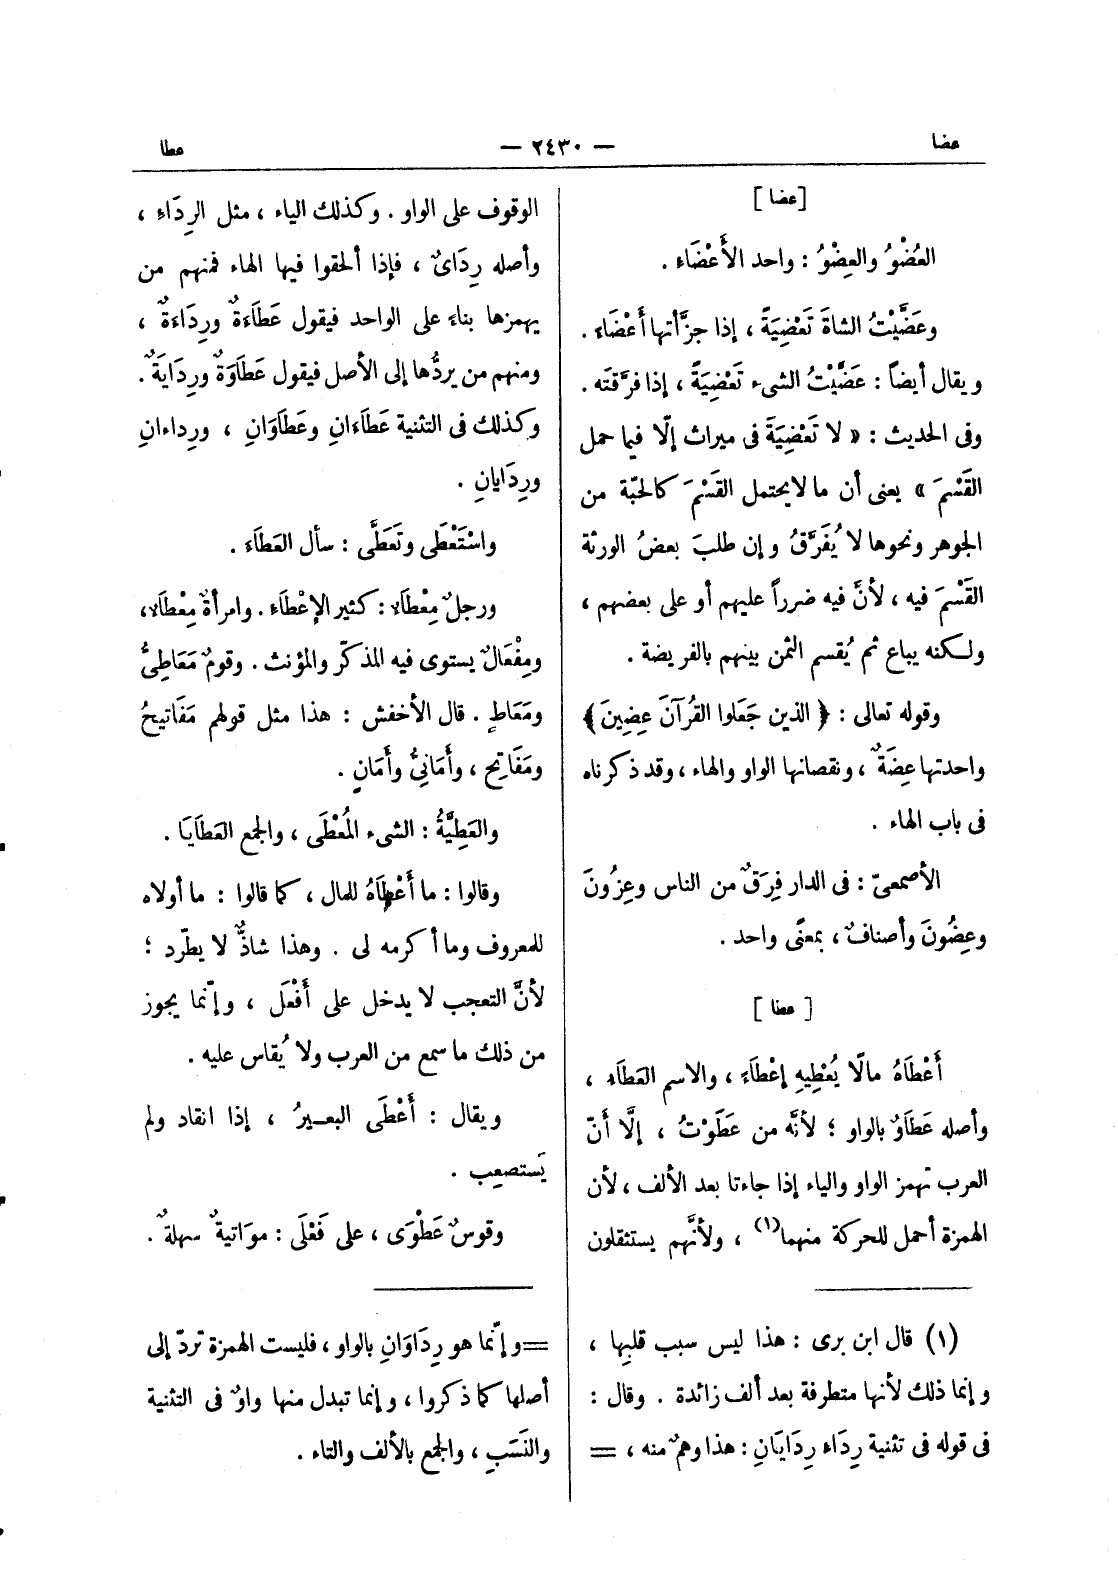 عضا
— ٢٤٣٠ —
عطا
[عضا]
العُضْوُ والعِضْوُ : واحد الأَعْضَاء .
وعَضَّيْتُ الشاةَ تَعْضِيَةً ، إذا جزَّأتها أَعْضَاءَ .
ويقال أيضاً : عَضَّيْتُ الشىء تَعْضِيَةً ، إذا فرَّقتَه .
وفى الحديث : « لا تَعْضِيَةَ فى ميراث إلّا فيما حمل
القَسْمَ » يعنى أن ما لا يحتمل القَسْمَ كالحبّة من
الجوهر ونحوها لا يُفَرَّقُ وإن طلبَ بعضُ الورثة
القَسْمَ فيه ، لأنَّ فيه ضرراً عليهم أو على بعضهم ،
ولكنه يباع ثم يُقسم الثمن بينهم بالفريضة .
وقوله تعالى : ﴿ الذين جَعَلوا القُرآنَ عِضِينَ﴾
واحدتها عِضَةٌ ، ونقصانها الواو والهاء ، وقد ذكرناه
فى باب الهاء .
الأصمعىّ : فى الدار فِرَقٌ من الناس وعِزُونَ
وعِضُونَ وأصنافٌ ، بمعنًى واحد .
[ عطا ]
أَعْطَاهُ مالًا يُعْطِيهِ إعْطَاءَ ، والاسم العَطَاءِ ،
وأصله عَطَاوٌ بالواو ؛ لأنَّه من عَطَوْتُ ، إلَّا أنّ
العرب تهمز الواو والياء إذا جاءتا بعد الألف ، لأن
الهمزة أحمل للحركة منهما(١) ، ولأنَّهم يستثقلون
(١) قال ابن برى : هذا ليس سبب قلبِها ،
وإنما ذلك لأنها متطرفة بعد ألف زائدة . وقال :
فى قوله فى تثنية رِدَاء رِدَايَانِ : هذا وهمٌ منه ، =
الوقوف على الواو . وكذلك الياء ، مثل الرِدَاءِ ،
وأصله رِدَاىٌ ، فإذا ألحقوا فيها الهاء فمنهم من
يهمزها بناءَ على الواحد فيقول عَطَاءَةٌ ورِدَاءَةٌ ،
ومنهم من يردُّها إلى الأصل فيقول عَطَاوَةٌ ورِدَايَةٌ .
وكذلك فى التثنية عَطَاءَانِ وعَطَاوَانِ ، ورِداءانِ
ورِدَايانِ .
واسْتَعْطَى وتَعَطَّى : سأل العَطَاءَ .
ورجلٌ مِعْطَاءٌ : كثير الإعْطَاءِ . وامرأةٌ مِعْطَاءٌ ،
ومِفْعَالٌ يستوى فيه المذكّر والمؤنث . وقومٌ مَعَاطِىُّ
ومَعَاطٍ . قال الأخفش : هذا مثل قولهم مَفَاتيحُ
ومَفَاتِح ، وأَمَانِىُّ وأَمَانٍ .
والعَطِيَّةُ : الشىء المُعْطَى ، والجمع العَطَايَا .
وقالوا : ما أَعْطَاهُ للمال ، كما قالوا : ما أولاه
للمعروف وما أكرمه لى . وهذا شاذٌّ لا يطّرد ؛
لأنَّ التعجب لا يدخل على أَفْعَلَ ، وإنّما يجوز
من ذلك ما سمع من العرب ولا يُقاس عليه .
ويقال : أَعْطَى البعيرُ ، إذا انقاد ولم
يَستصعِب .
وقوسٌ عَطْوَى ، على فَعْلَى : موَاتيةٌ سهلةٌ .
= وإنّما هو رِدَاوَانِ بالواو ، فليست الهمزة تردّ إلى
أصلها كما ذكروا ، وإنما تبدل منها واوٌ فى التثنية
والنَسَبِ ، والجمع بالألف والتاء .